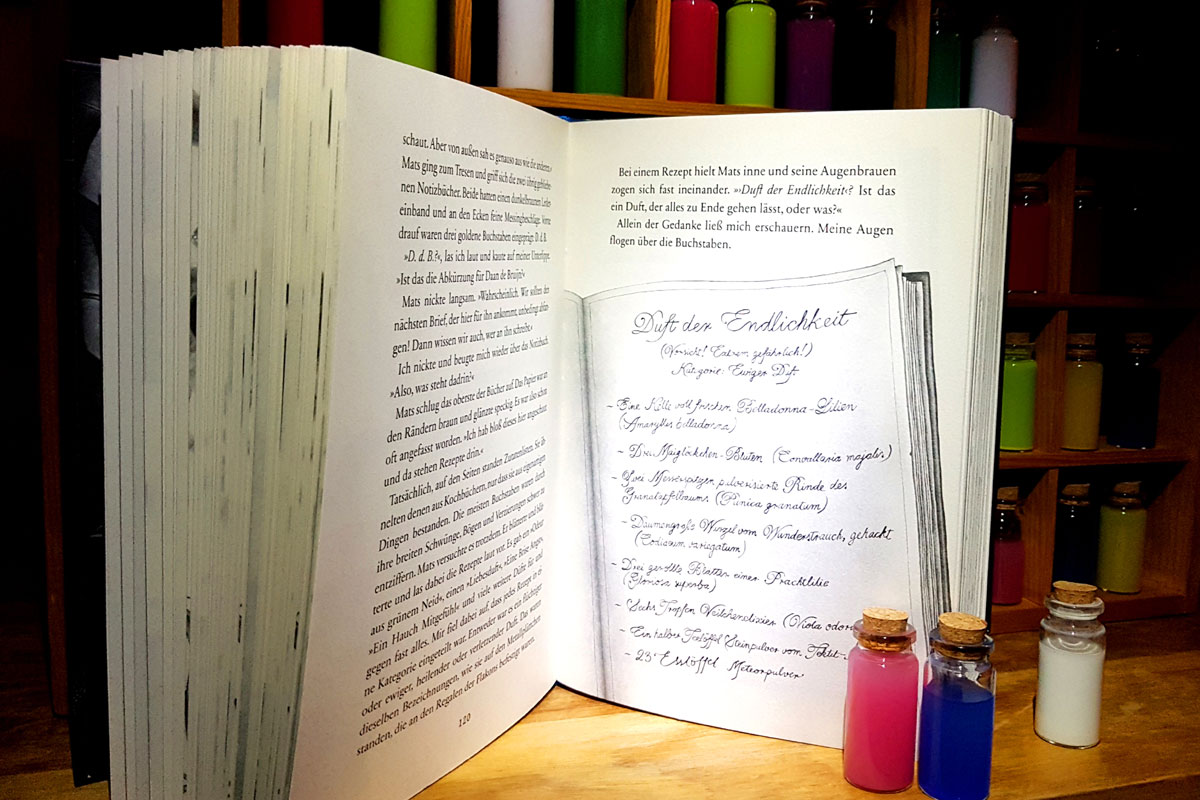 schaut. Aber von außen sah es genauso aus wie die anderen.«
Mats ging zum Tresen und griff sich die zwei übrig gebliebe-
nen Notizbücher. Beide hatten einen dunkelbraunen Leder-
einband und an den Ecken feine Messingbeschläge. Vorne
drauf waren drei goldene Buchstaben eingeprägt: D. d. B.
»D. d. B.?«, las ich laut und kaute auf meiner Unterlippe.
»Ist das die Abkürzung für Daan de Bruijn?«
Mats nickte langsam. »Wahrscheinlich. Wir sollten den
nächsten Brief, der hier für ihn ankommt, unbedingt abfan-
gen! Dann wissen wir auch, wer an ihn schreibt.«
Ich nickte und beugte mich wieder über das Notizbuch.
»Also, was steht dadrin?«
Mats schlug das oberste der Bücher auf. Das Papier war an
den Rändern braun und glänzte speckig. Es war also schon
oft angefasst worden. »Ich hab bloß dieses hier angeschaut
und da stehen Rezepte drin.«
Tatsächlich, auf den Seiten standen Zutatenlisten. Sie äh-
nelten denen aus Kochbüchern, nur dass sie aus eigenartigen
Dingen bestanden. Die meisten Buchstaben waren durch
ihre breiten Schwünge, Bögen und Verzierungen schwer zu
entziffern. Mats versuchte es trotzdem. Er blätterte und blät-
terte und las dabei die Rezepte laut vor. Es gab ein »Odeur
aus grünem Neid«, einen »Liebesduft«, »Eine Brise Angst«,
»Ein Hauch Mitgefühl« und viele weitere Düfte für und
gegen fast alles. Mir fiel dabei auf, dass jedes Rezept in ei-
ne Kategorie eingeteilt war. Entweder war es ein flüchtiger
oder ewiger, heilender oder verletzender Duft. Das waren
dieselben Bezeichnungen, wie sie auf den Metallplättchen
standen, die an den Regalen der Flakons befestigt waren.
120
Bei einem Rezept hielt Mats inne und seine Augenbrauen
zogen sich fast ineinander. »›Duft der Endlichkeit‹? Ist das
ein Duft, der alles zu Ende gehen lässt, oder was?«
Allein der Gedanke ließ mich erschauern. Meine Augen
flogen über die Buchstaben.
Duft der Endlichkeit
(Vorsicht! Extrem gefährlich!)
Kategorie: Ewiger Duft
- Eine Kelle voll frischen Belladonna-Lilien
(Amaryllis belladonna)
- Drei Maiglöckchen-Blüten (Convallaria majalis)
- Zwei Messerspitzen pulverisierte Rinde des
Granatapfelbaums (Punica granatum)
- Daumengroße Wurzel vom Wunderstrauch, gehackt
(Codiaeum variegatum)
- Drei gerollte Blätter einer Prachtlilie
(Gloriosa superba)
- Sechs Tropfen Veilchenelixier (Viola odor
- Ein halber Teelöffel Steinpulver vom Tektit-
- 23 Esslöffel Meteorpulver